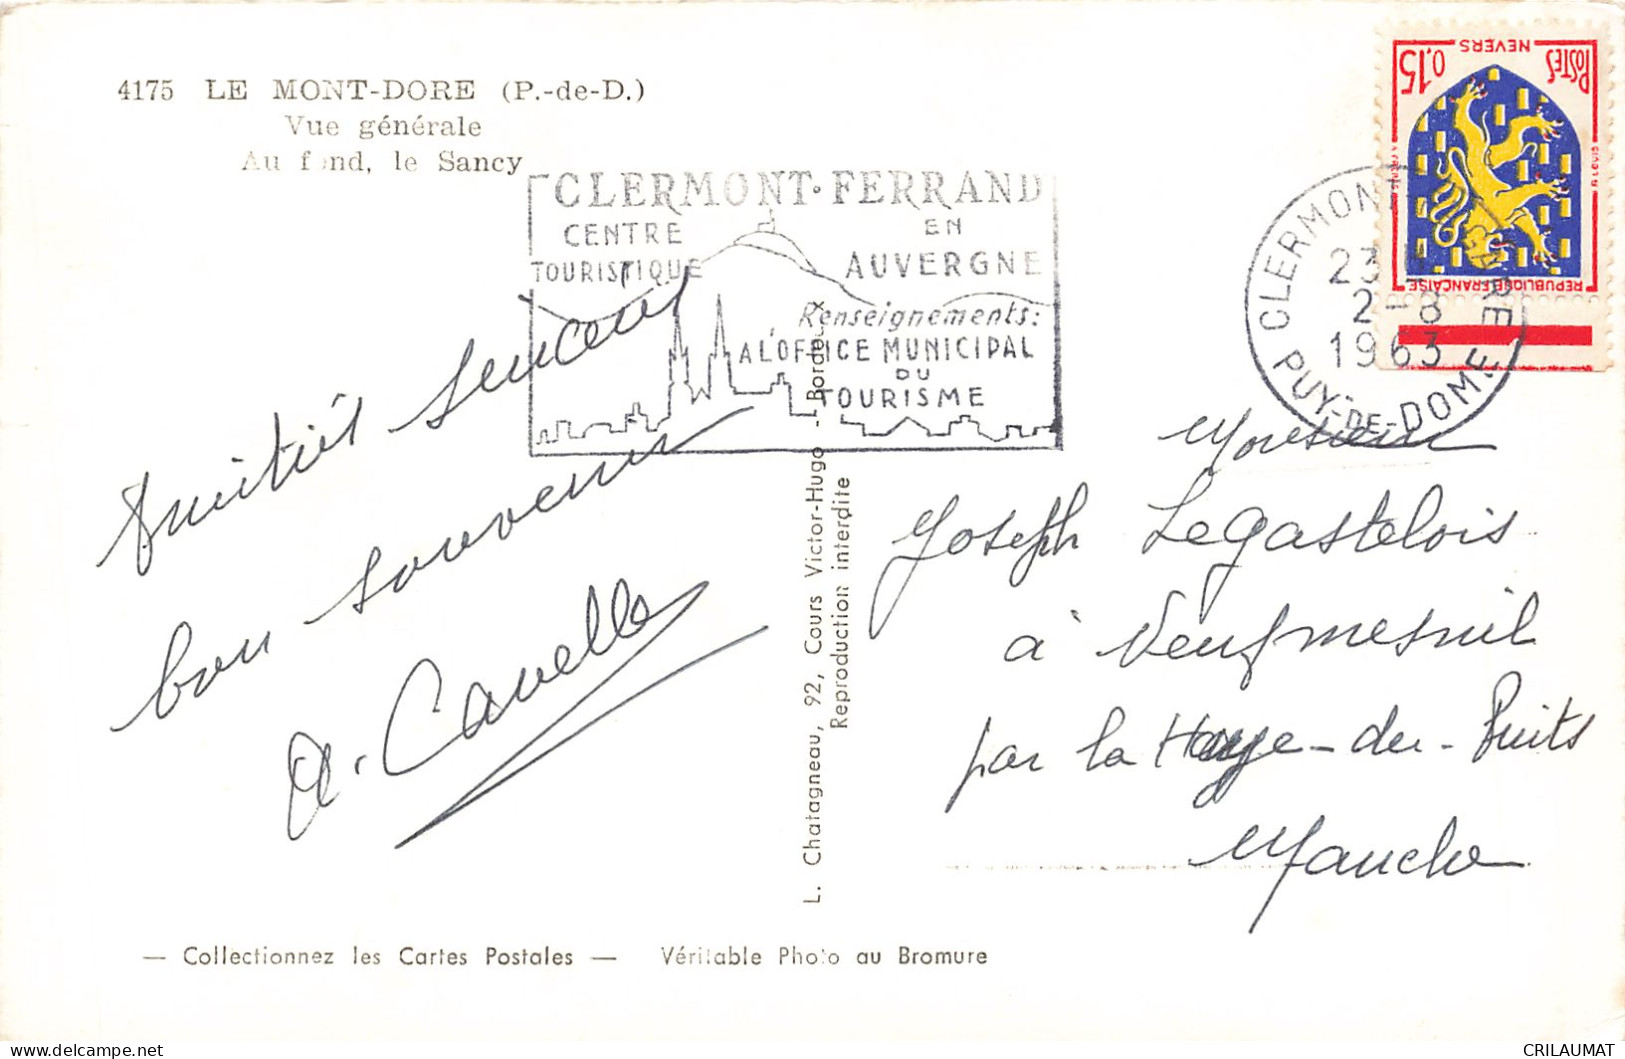 4175 LE MONT-DORE (P.-de-D.)
Vue générale
Au fond, le Sancy
CLERMONT-FERRAND
CENTRE
TOURISTIQUE
EN
AUVERGNE
Renseignements:
A L'OFFICE MUNICIPAL
DU
TOURISME
POSTES
0,15
NEVERS
REPUBLIQUE FRANÇAISE
CLERMONT
23
2-8
1963
PUY-DE-DOME
Amitiés sincères
bon souvenir
A. Cavelle
L. Chatagneau, 92, Cours Victor-Hugo - Bordeaux
Reproduction interdite
Monsieur
Joseph Legastelois
à Neufmesnil
par la Haye-du-Puits
Manche
— Collectionnez les Cartes Postales — Véritable Photo au Bromure
CRILAUMAT